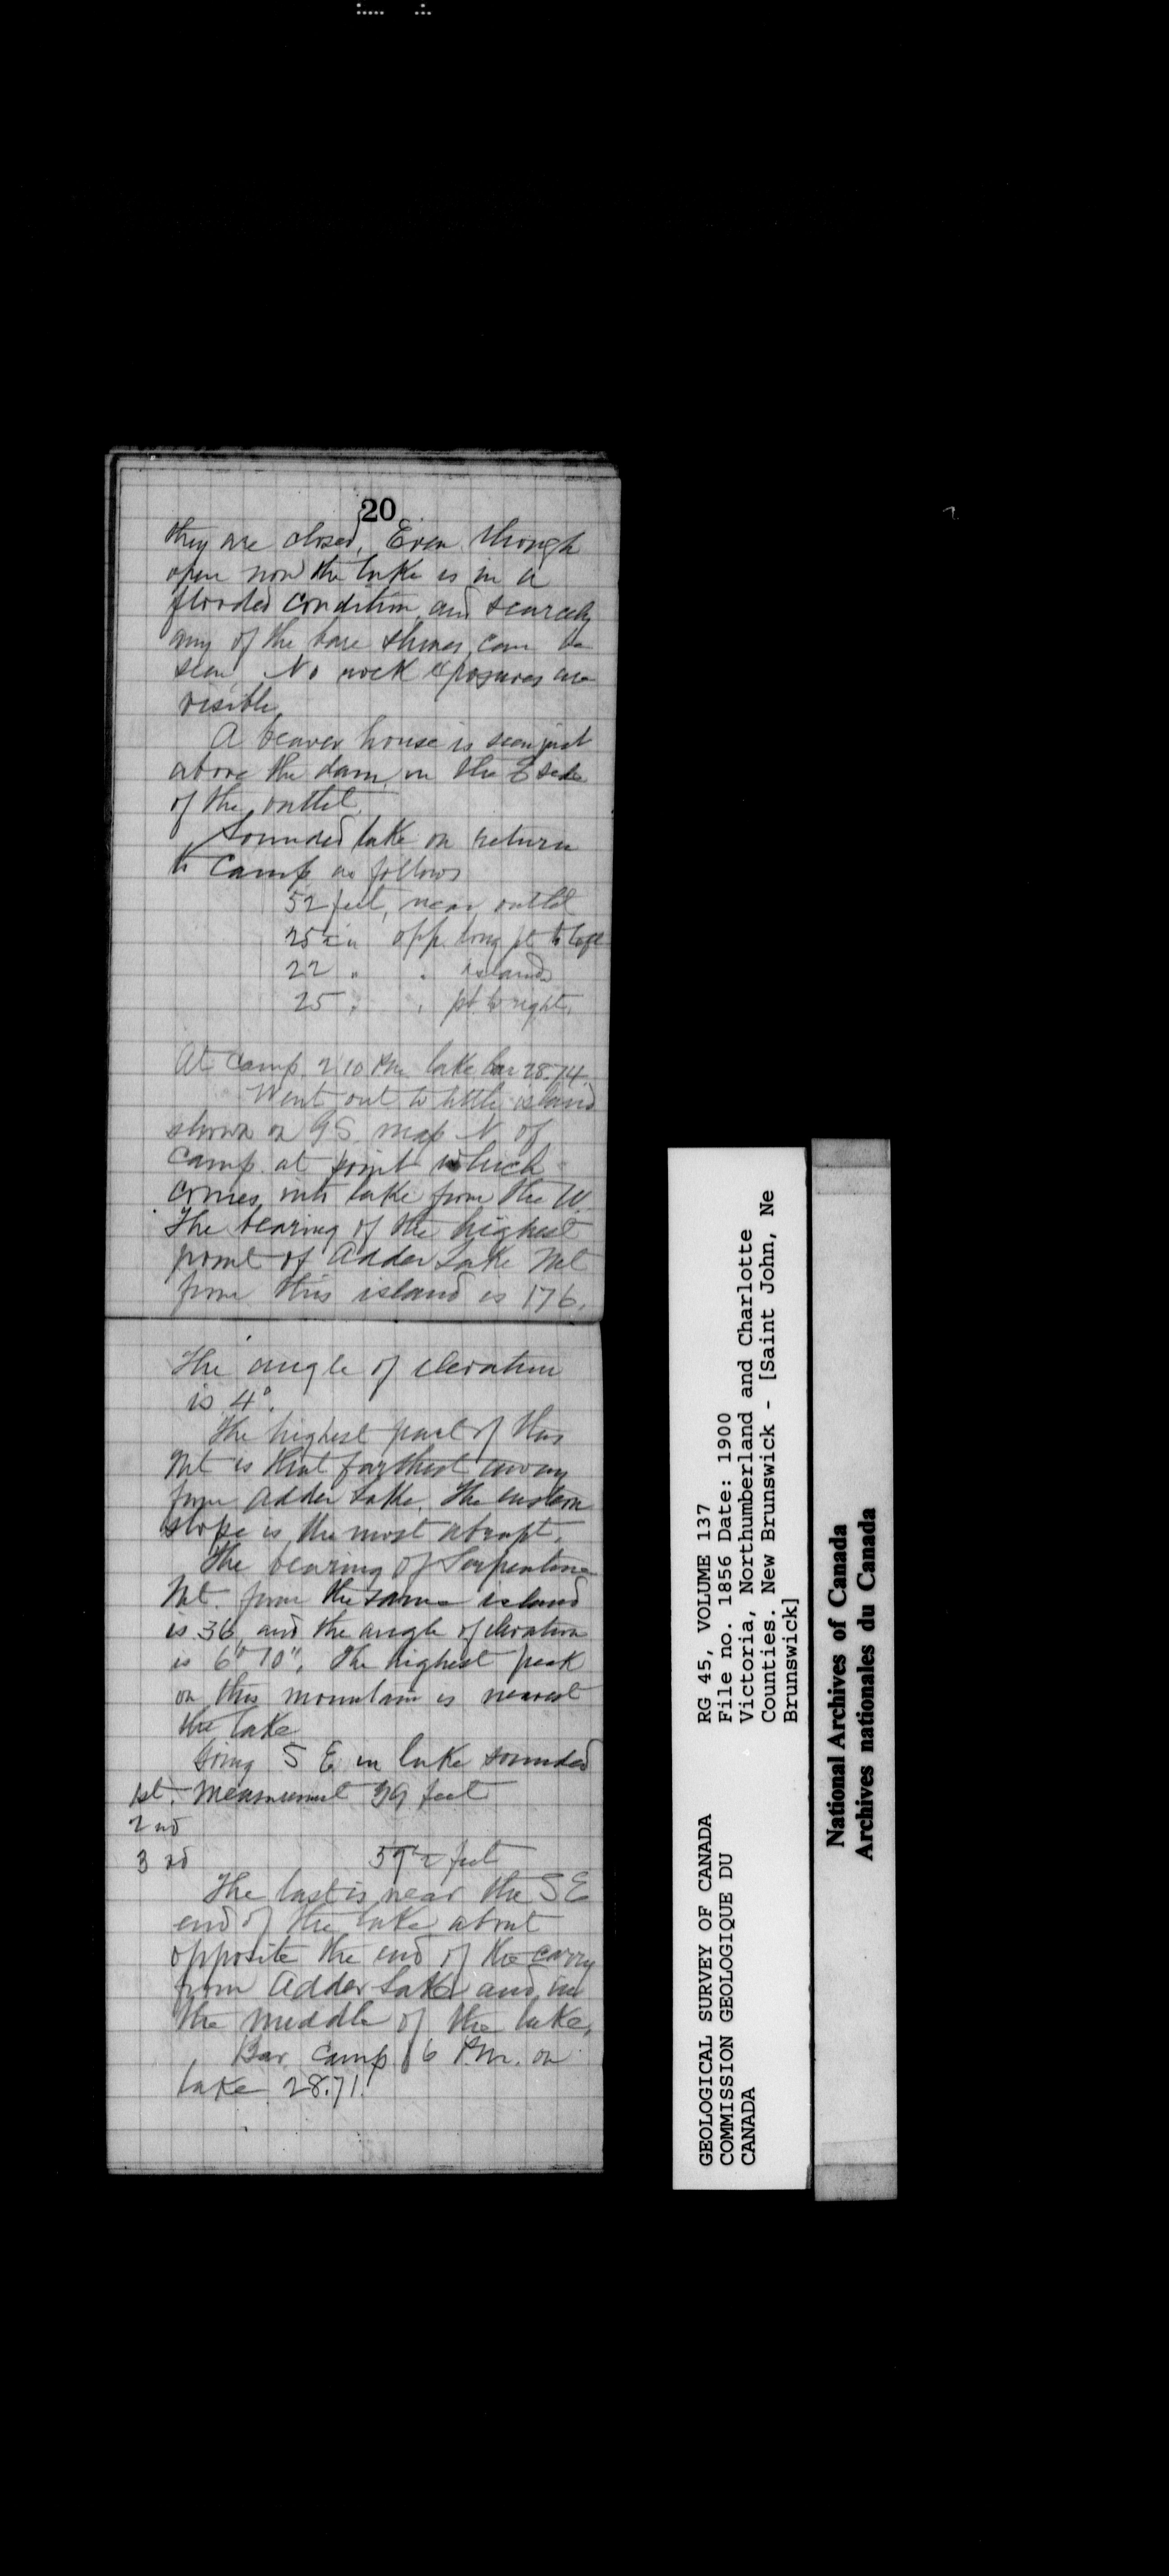 20
they are closed. Even though
open now the lake is in a
flooded condition and scarcely
any of the bare shores can be
seen. No rock exposures are
visible.
A beaver house is seen just
above the dam, on the E side
of the outlet.
Sounded lake on return
to camp as follows
52 feet, near outlet
25½ " opp. long pt to left
22 " " islands
25 " " pt. to right.
At camp 2 10 P.M. lake bar 28.74.
Went out to little island
shown on G S. map N of
camp at point which
comes into lake from the W.
The bearing of the highest
point of Adder Lake Mt
from this island is 176.
The angle of elevation
is 4°.
The highest part of this
Mt is that farthest away
from Adder Lake. The eastern
slope is the most abrupt.
The bearing of Serpentine
Mt. from the same island
is 36 and the angle of elevation
is 6° 10". The highest peak
on this mountain is nearest
the lake
Going S E in lake sounded
1st. Measurement 39 feet
2nd
3rd 59½ feet
The last is near the S E
end of the lake about
opposite the end of the carry
from Adder Lake and in
the middle of the lake.
Bar. camp 6 P.M. on
lake 28.71.
RG 45, VOLUME 137
File no. 1856 Date: 1900
Victoria, Northumberland and Charlotte
Counties. New Brunswick - [Saint John, Ne
Brunswick]
GEOLOGICAL SURVEY OF CANADA
COMMISSION GEOLOGIQUE DU
CANADA
National Archives of Canada
Archives nationales du Canada